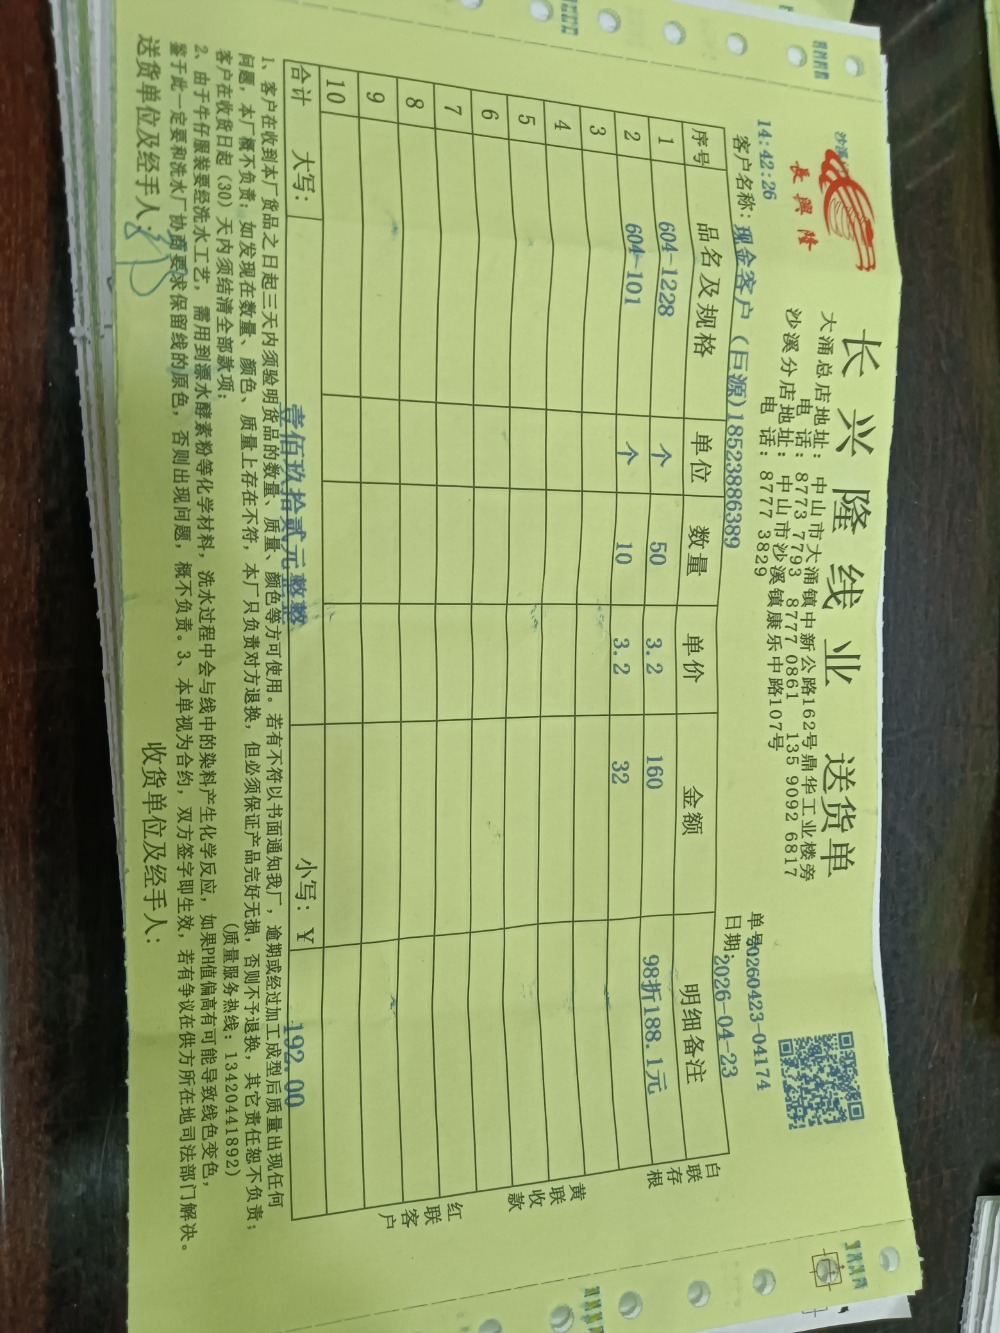 長興隆
长兴隆线业 送货单
大涌总店地址: 中山市大涌镇中新公路162号鼎华工业楼旁
电 话: 8773 7793 8777 0861 135 9092 6817
沙溪分店地址: 中山市沙溪镇康乐中路107号
电 话: 8777 3829
14:42:26
单号:0260423-04174
客户名称: 现金客户 (巨源)18523886389
日期: 2026-04-23
序号 品名及规格 单位 数量 单价 金额 明细备注
1 604-1228 个 50 3.2 160 98折188.1元
2 604-101 个 10 3.2 32
3
4
5
6
7
8
9
10
合计 大写: 壹佰玖拾贰元整整 小写: ¥ 192.00
白联存根
黄联收款
红联客户
1、客户在收到本厂货品之日起三天内须验明货品的数量、质量、颜色等方可使用。若有不符以书面通知我厂, 逾期或经过加工成型后质量出现任何
问题, 本厂概不负责; 如发现在数量、颜色、质量上存在不符, 本厂只负责对方退换, 但必须保证产品完好无损, 否则不予退换, 其它责任恕不负责;
客户在收货日起 (30) 天内须结清全部款项;
(质量服务热线: 13420441892)
2、由于牛仔服装要经洗水工艺, 需用到漂水酵素粉等化学材料, 洗水过程中会与线中的染料产生化学反应, 如果PH值偏高有可能导致线色变色,
鉴于此一定要和洗水厂协商要求保留线的原色, 否则出现问题, 概不负责。3、本单视为合约, 双方签字即生效, 若有争议在供方所在地司法部门解决。
送货单位及经手人:
收货单位及经手人: